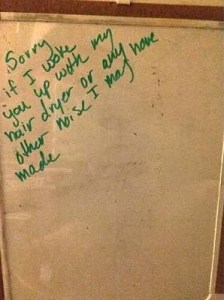 Sorry
if I woke
you up with my
hair dryer or any
other noise I may have
made